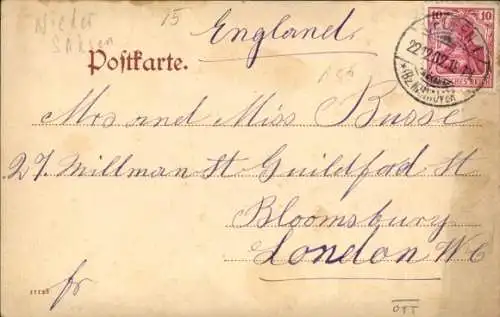 Nieder
Sachsen
15
England
10 10
22.12.02
Postkarte.
Mrs and Miss Busse
27. Millman St Guildford St
Bloomsbury
London W.C
fr